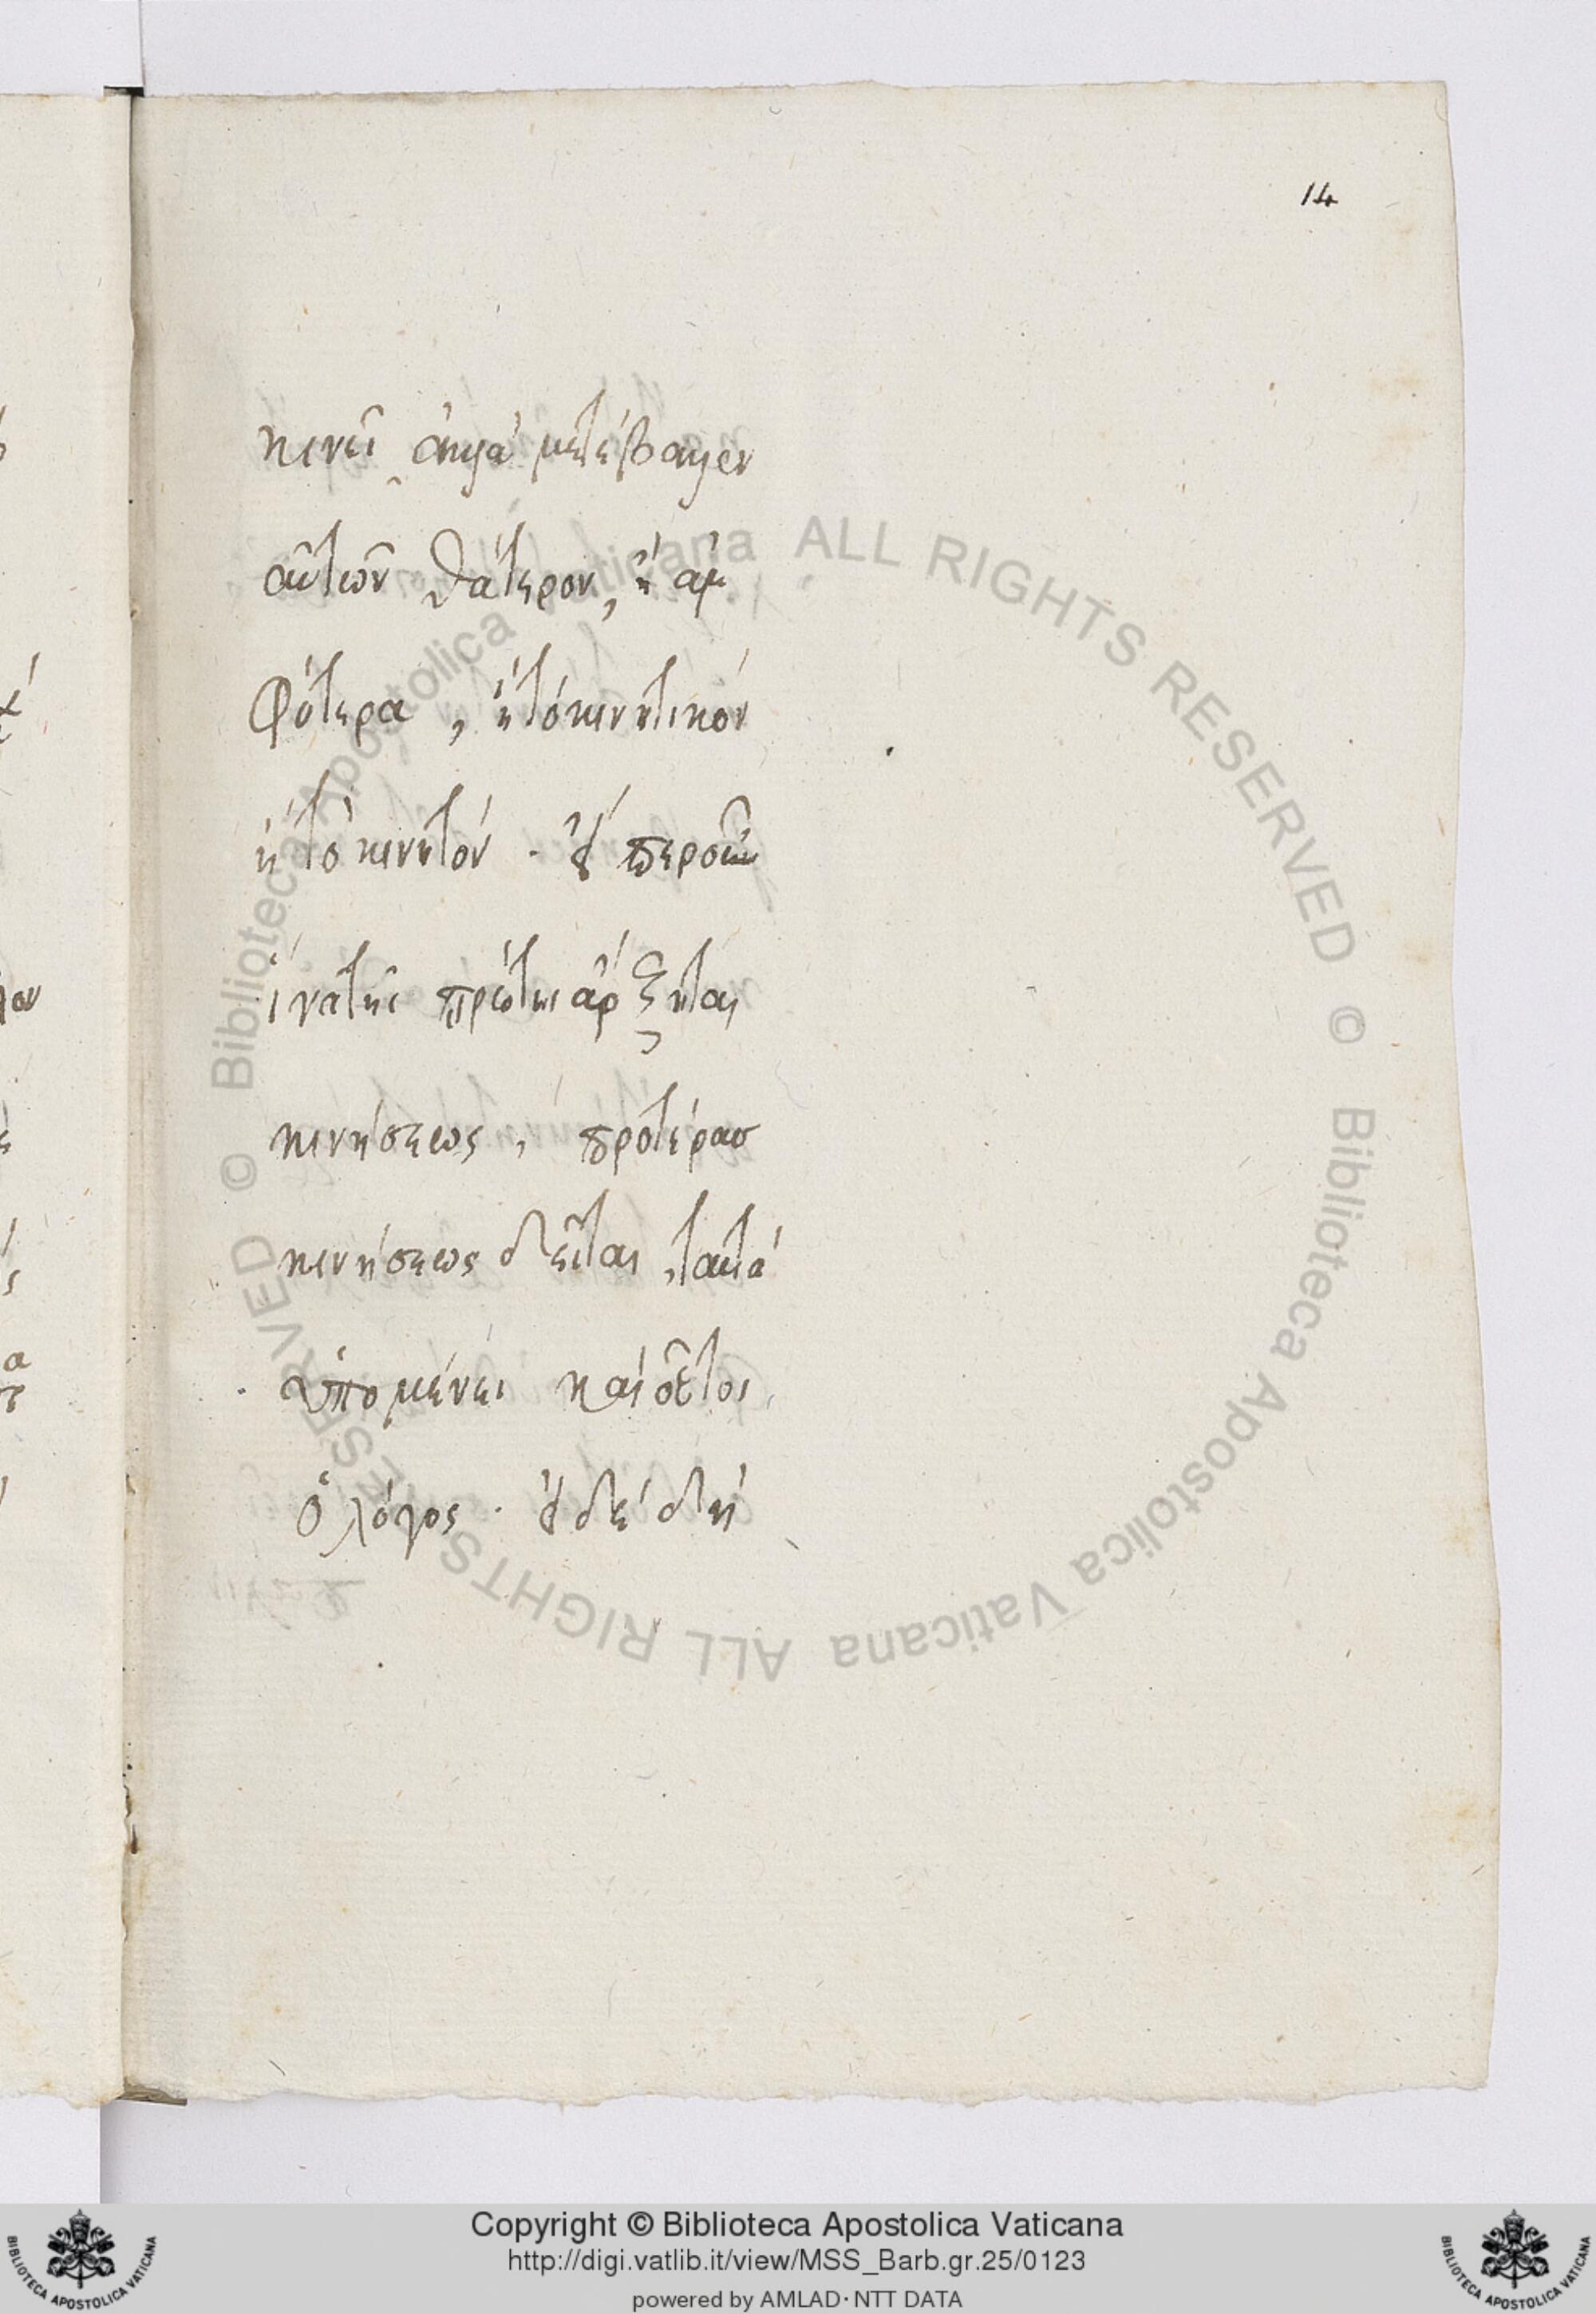 14
κινεῖ ἀλλὰ μετέβαλεν
αὐτῶν θάτερον, ἢ ἀμ
φότερα, ἢ τὸ κινητικὸν
ἢ τὸ κινητόν. ὁ
πρώτη ἄρξηται
κινήσεως, προτέρασ
κινήσεως δεῖται, ταυτὰ
ὑπομένει καὶ οὗτοι
ὁ λόγος. εἰ δὲ δὴ
© Biblioteca Apostolica Vaticana ALL RIGHTS RESERVED © Biblioteca Apostolica Vaticana ALL RIGHTS RESERVED
Copyright © Biblioteca Apostolica Vaticana
http://digi.vatlib.it/view/MSS_Barb.gr.25/0123
powered by AMLAD·NTT DATA
BIBLIOTECA APOSTOLICA VATICANA
BIBLIOTECA APOSTOLICA VATICANA